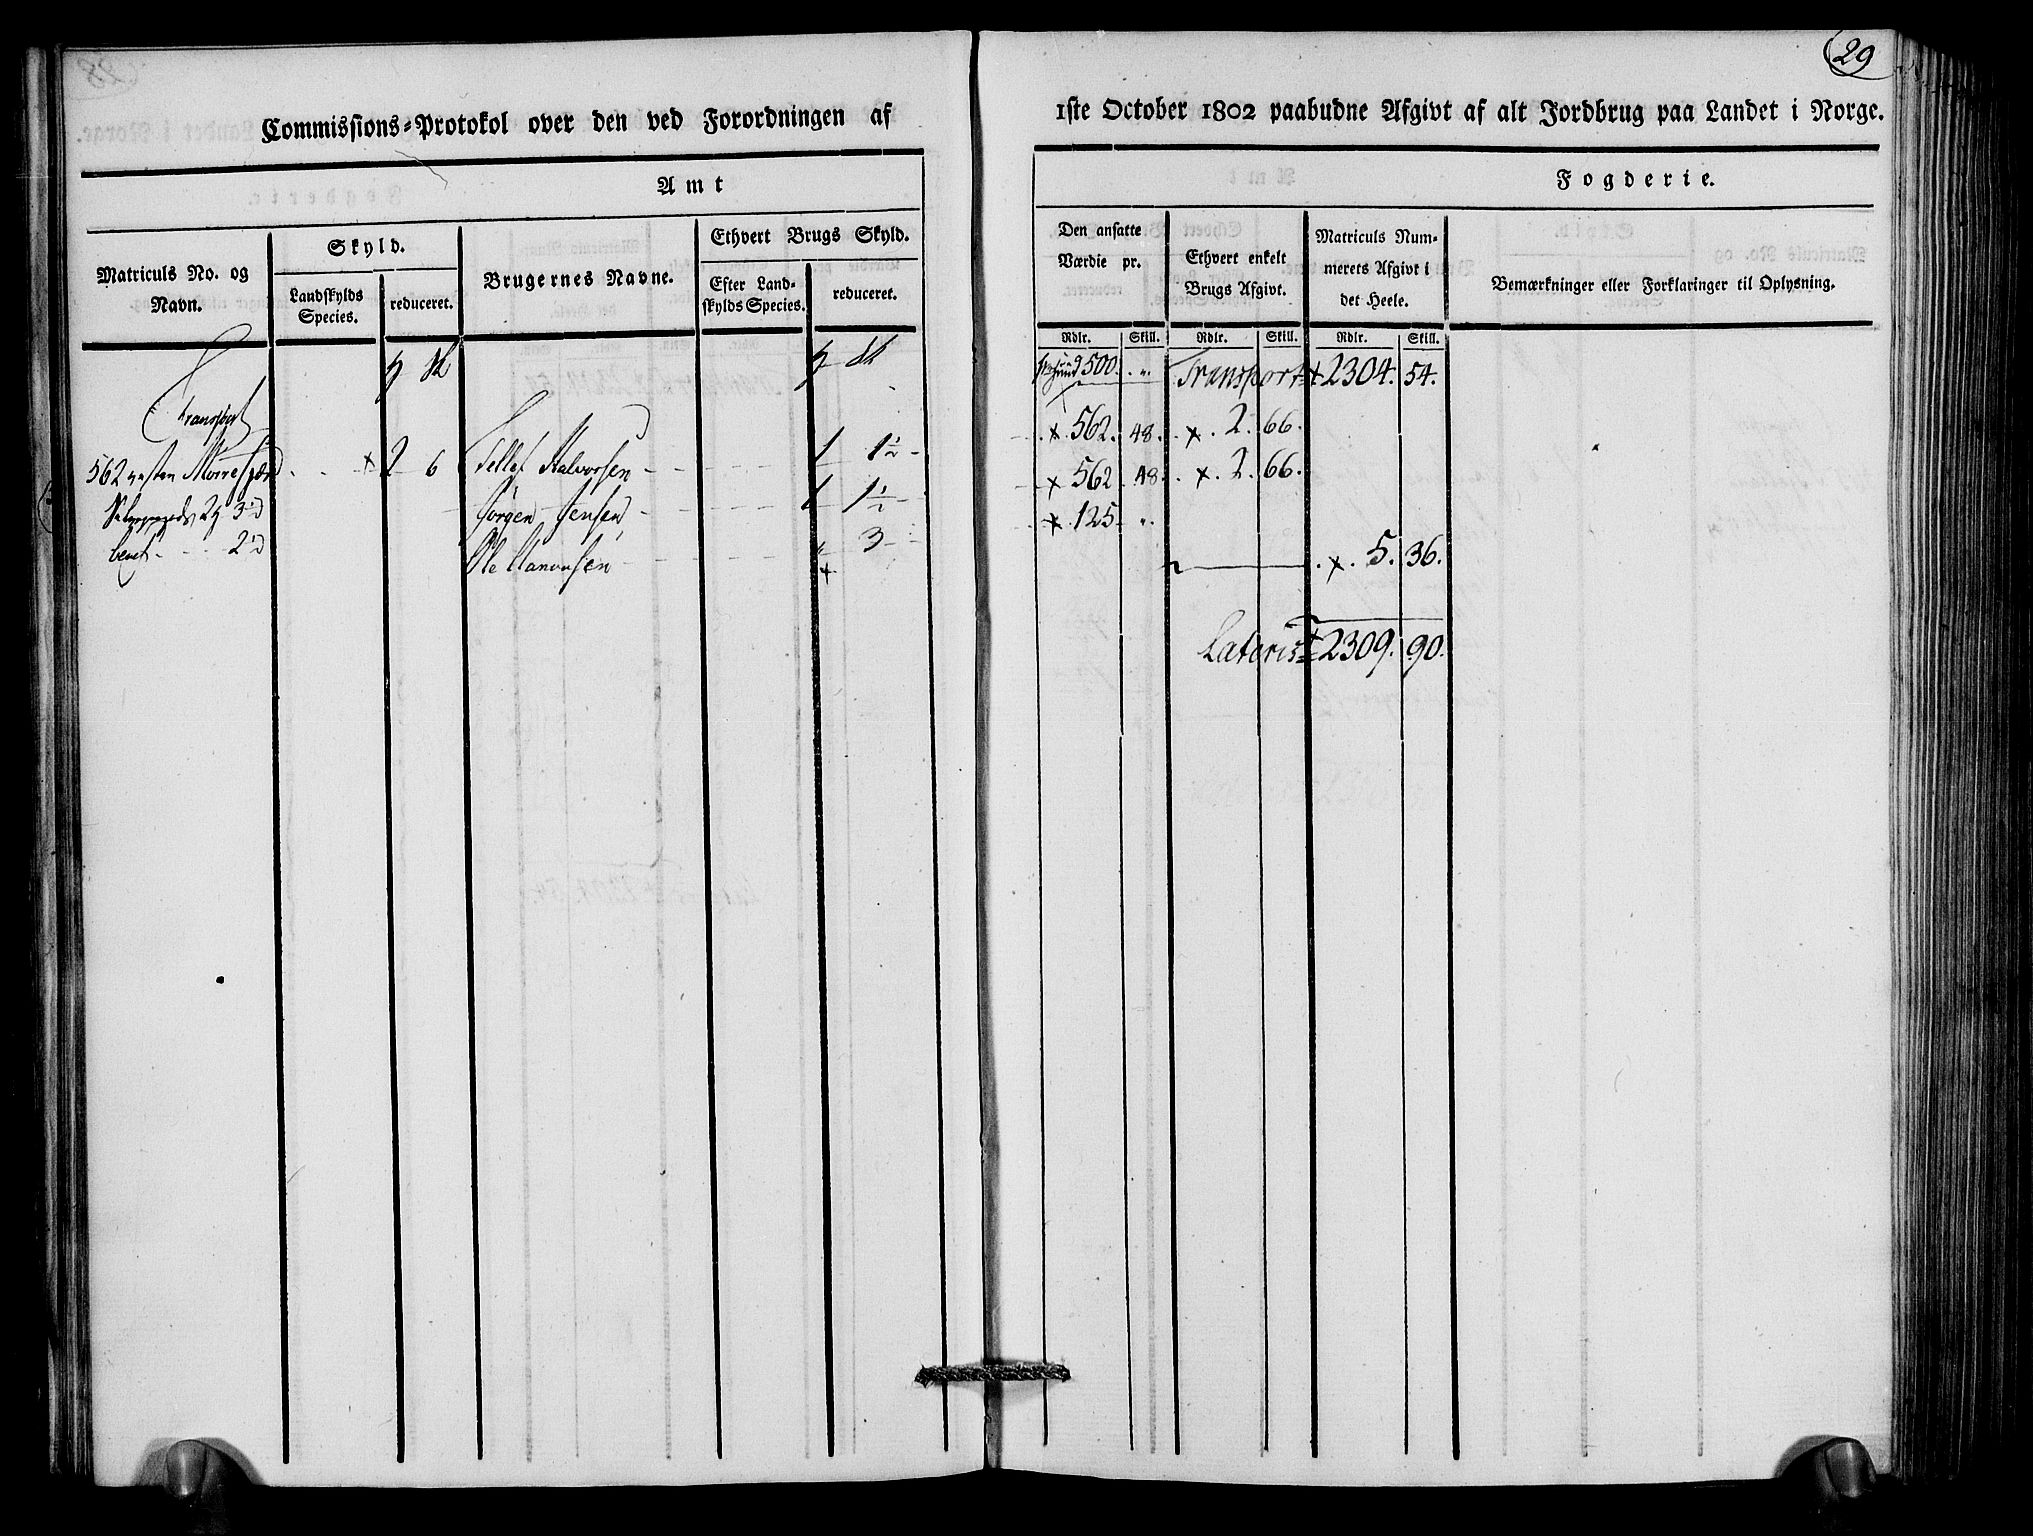 29
Commissions-Protokol over den ved Forordningen af 1ste October 1802 paabudne Afgivt af alt Jordbrug paa Landet i Norge.
Amt Fogderie.
Matriculs No. og Navn.
Skyld.
Landskylds Species.
reduceret.
Brugernes Navne.
Ethvert Brugs Skyld.
Efter Landskylds Species.
reduceret.
Den ansatte Værdie pr.
Ethvert enkelt Brugs Afgivt.
Matriculs Nummerets Afgivt i det Heele.
Bemærkninger eller Forklaringer til Oplysning.
Rdlr. Skill. Rdlr. Skill. Rdlr. Skill.
500. Transport 2304. 54.
Transport
562 2 6 Tellef Halvorsen 1 1½ 562. 48. 2. 66.
Jørgen Jensen 1 1½ 562 48. 2. 66.
2 Ole 3 125
5. 36.
Lateris 2309. 90.